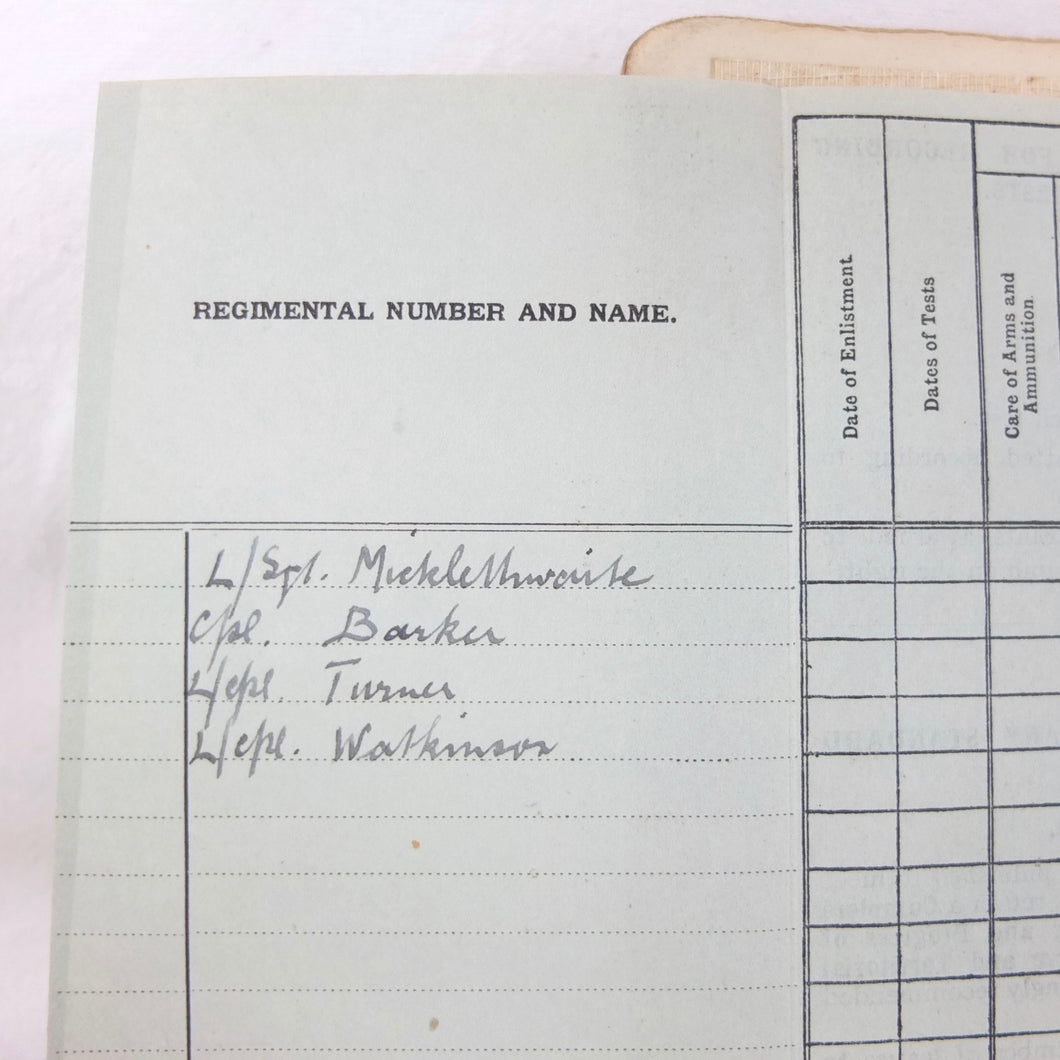 REGIMENTAL NUMBER AND NAME.
Date of Enlistment
Dates of Tests
Care of Arms and
Ammunition.
L/Sgt. Micklethwaite
Cpl. Barker
L/cpl. Turner
L/cpl. Watkinson